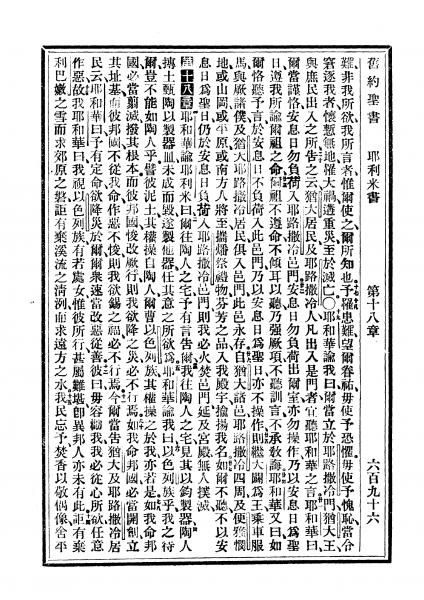 舊約聖書　耶利米書　第十八章　六百九十六
難非我所欲我所言者惟爾使之爾所知也予罹患難望爾眷祐毋使予恐懼毋使予愧恥當令
窘逐我者懷慙無地罹大禍遭重災至於滅亡〇耶和華諭我曰爾當立於耶路撒冷門猶大王
與庶民出入之所告之云猶大居民及耶路撒冷人凡出入是門者宜聽耶和華之言耶和華曰
爾當謹恪安息日勿負荷入耶路撒冷邑門安息日勿負荷出爾室亦勿操作乃以安息日爲聖
遵我所諭爾祖之命爾祖不遵命不傾耳以聽乃強厥項不聽訓言不承敎誨耶和華又曰如
爾恪聽予言於安息日不負荷入此邑門乃以安息日爲聖日亦不操作則繼大闢爲王乘車服
馬與厥諸僕及猶大耶路撒冷居民俱入邑門此邑永存自猶大諸邑耶路撒冷四周及便雅憫
地或山岡或平原或南方人將至攜燔祭禮物芬芳之品入我殿宇揄揚我名如爾不聽不以安
息日爲聖日仍於安息日負荷入耶路撒冷邑門則我必火焚邑門延及宮殿無人撲滅
第十八章 耶和華諭耶利米曰爾往陶人之宅予有言告爾我往陶人之宅見其以鈞製器陶人
摶土甄陶以製器皿未成而毀遂製他器任其意之所欲爲耶和華諭我曰以色列族乎我之待
爾豈不能如陶人乎譬彼泥土其權操自陶人爾曹以色列族其權操之於我亦若是如我命邦
國必當翦滅撥其根本而彼邦國悛改厥行則我欲降之災必不行焉如我命邦國必當開創立
其址基而彼邦國不從我命作惡不悛則我欲錫之福必不行焉今爾當告猶大及耶路撒冷居
民云耶和華曰予有定命欲降災於爾爾衆速當改惡從善彼曰毋容勸我我必從心所欲任意
作惡故我耶和華曰我視以色列族有若處女惟彼所行甚屬難堪卽異邦人亦未有此詎有棄
利巴嫩之雪而求郊原之磐詎有棄溪流之清洌而求遠方之水我民忘予焚香以敬偶像舍平